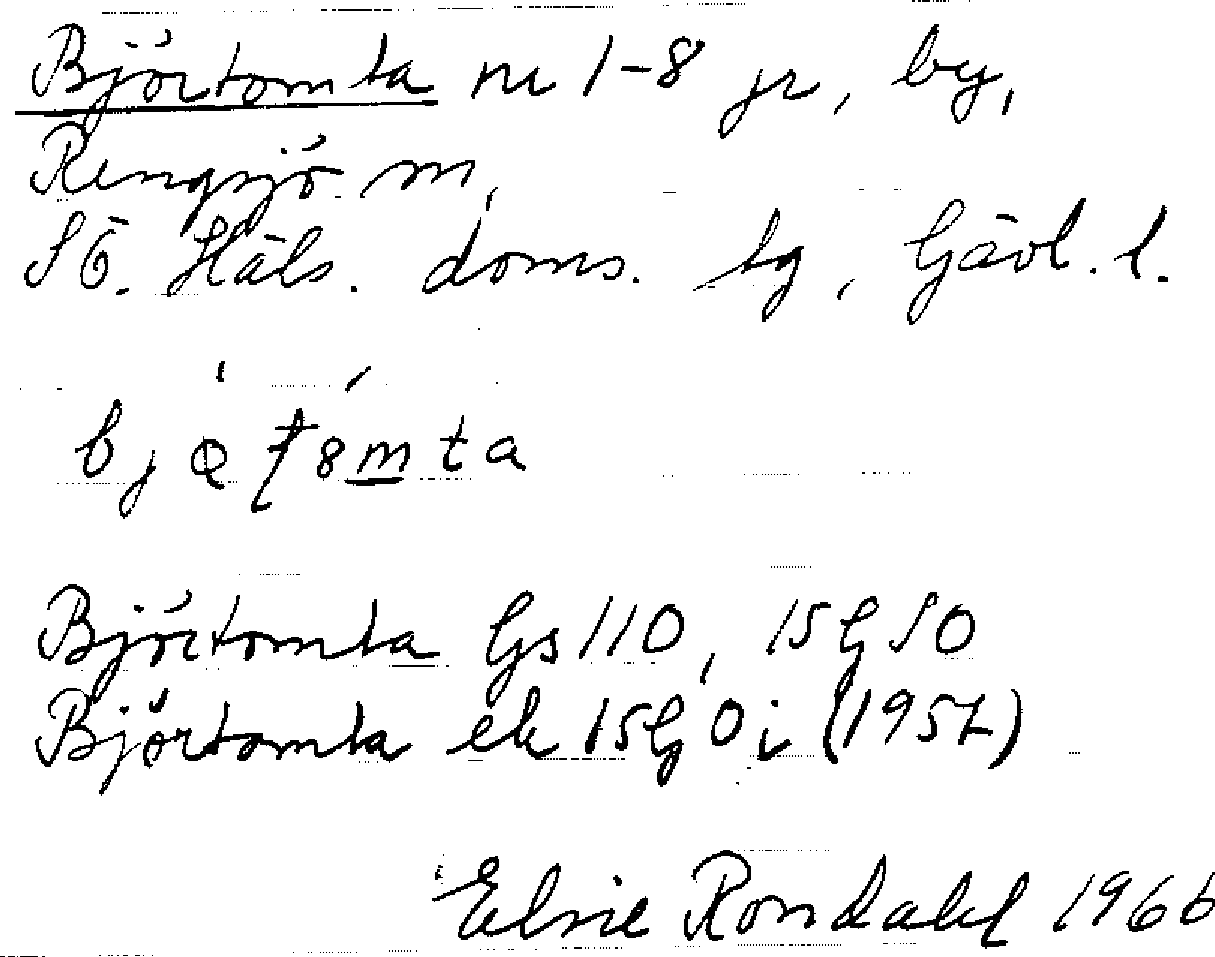 Björtomta nr 1-8 jr, by,
Rengsjö sn,
SÖ. Häls. doms. tg, Gävl. l.
Björtomta Gs 110, 15G SO
Björtomta ek 15G 0i (1957)
Elsie Rondahl 1966